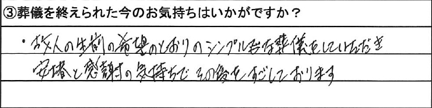 ③葬儀を終えられた今のお気持ちはいかがですか？
・故人の生前の希望のとおりのシンプルな葬儀をしていただき
安堵と感謝の気持ちで その後をすごしております